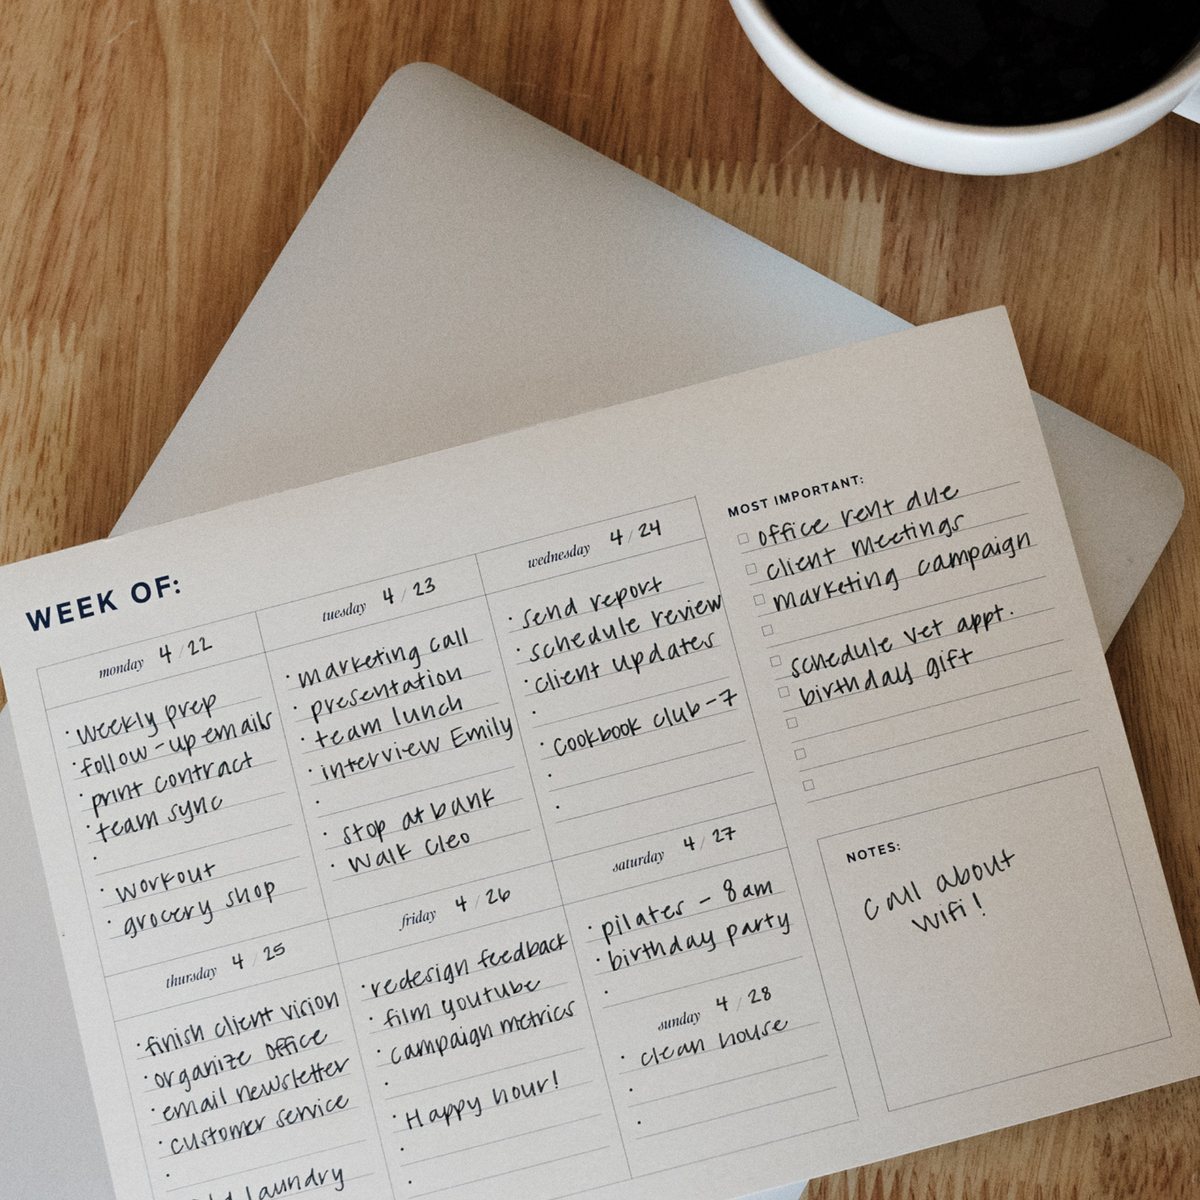 WEEK OF:
monday 4/22
· weekly prep
· follow-up emails
· print contract
· team sync
·
· workout
· grocery shop
tuesday 4/23
· marketing call
· presentation
· team lunch
· interview Emily
·
· stop at bank
· walk Cleo
wednesday 4/24
· send report
· schedule review
· client updates
·
· Cookbook club-7
·
·
thursday 4/25
· finish client vision
· organize office
· email newsletter
· customer service
·
laundry
friday 4/26
· redesign feedback
· film youtube
· campaign metrics
·
· Happy hour!
·
·
saturday 4/27
· pilates - 8am
· birthday party
·
sunday 4/28
· clean house
·
·
MOST IMPORTANT:
office rent due
client meetings
marketing campaign
schedule vet appt.
birthday gift
NOTES:
call about
wifi!